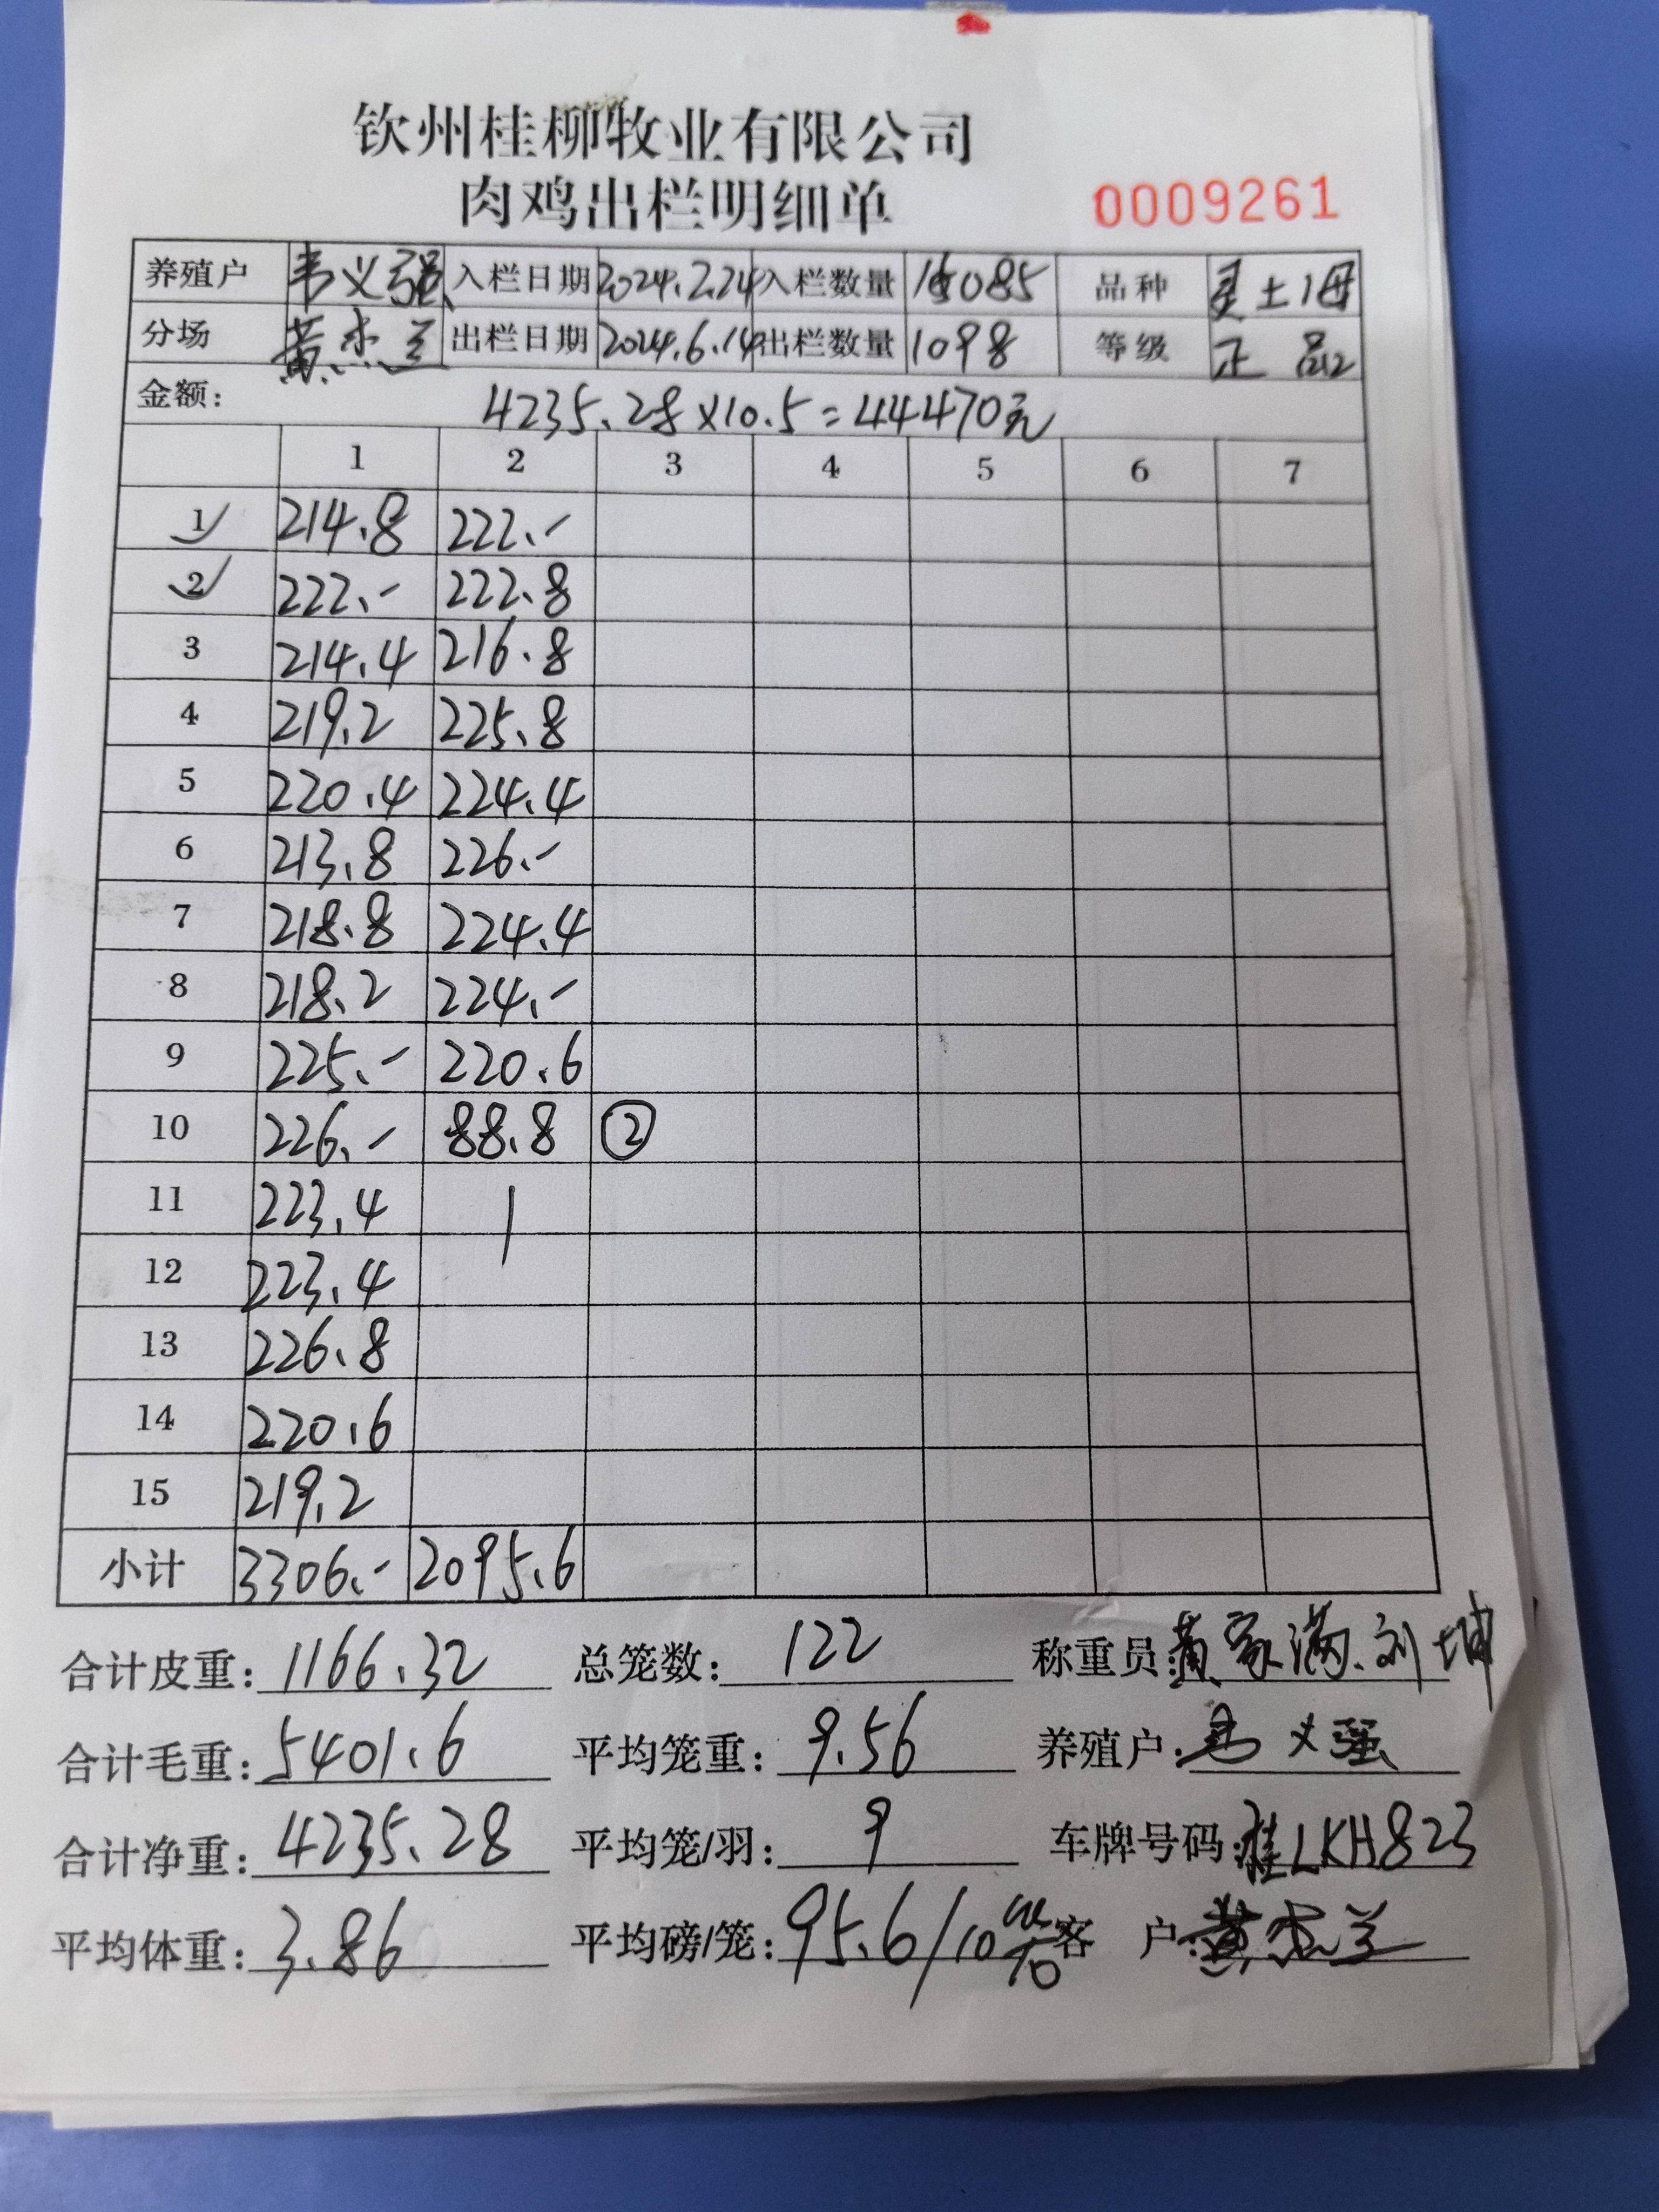 钦州桂柳牧业有限公司
肉鸡出栏明细单 0009261
养殖户 韦义强 入栏日期 2024.2.24 入栏数量 16085 品种 灵土1母
分场 黄杰兰 出栏日期 2024.6.14 出栏数量 1098 等级 正品
金额: 4235.28×10.5=44470元
1 2 3 4 5 6 7
1 214.8 222.-
2 222.- 222.8
3 214.4 216.8
4 219.2 225.8
5 220.4 224.4
6 213.8 226.-
7 218.8 224.4
8 218.2 224.-
9 225.- 220.6
10 226.- 88.8 ②
11 223.4
12 223.4
13 226.8
14 220.6
15 219.2
小计 3306.- 2095.6
合计皮重: 1166.32 总笼数: 122 称重员: 黄家满.刘坤
合计毛重: 5401.6 平均笼重: 9.56 养殖户: 韦义强
合计净重: 4235.28 平均笼/羽: 9 车牌号码: 桂LKH823
平均体重: 3.86 平均磅/笼: 95.6/10 客 户: 黄杰兰